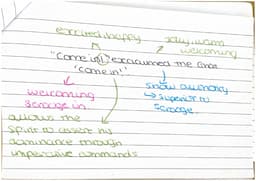 excited, happy
jolly, warm
welcoming
"Come in!" exclaimed the Ghost
'come in!'
welcoming
Scrooge in.
show autonomy
↳ superior to
Scrooge.
allows the
spirit to assert his
dominance through
imperative commands